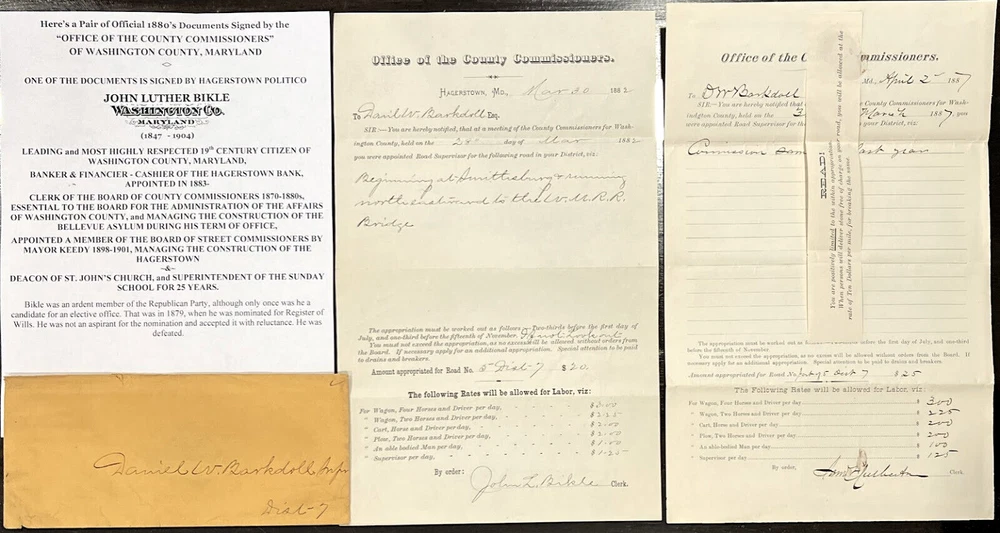 Here's a Pair of Official 1880's Documents Signed by the
"OFFICE OF THE COUNTY COMMISSIONERS"
OF WASHINGTON COUNTY, MARYLAND
ONE OF THE DOCUMENTS IS SIGNED BY HAGERSTOWN POLITICO
JOHN LUTHER BIKLE
WASHINGTON CO.
MARYLAND
(1847 - 1904)
LEADING and MOST HIGHLY RESPECTED 19th CENTURY CITIZEN OF
WASHINGTON COUNTY, MARYLAND,
BANKER & FINANCIER - CASHIER OF THE HAGERSTOWN BANK,
APPOINTED IN 1883-
CLERK OF THE BOARD OF COUNTY COMMISSIONERS 1870-1880s,
ESSENTIAL TO THE BOARD FOR THE ADMINISTRATION OF THE AFFAIRS
OF WASHINGTON COUNTY, and MANAGING THE CONSTRUCTION OF THE
BELLEVUE ASYLUM DURING HIS TERM OF OFFICE,
APPOINTED A MEMBER OF THE BOARD OF STREET COMMISSIONERS BY
MAYOR KEEDY 1898-1901, MANAGING THE CONSTRUCTION OF THE
HAGERSTOWN
-&-
DEACON OF ST. JOHN'S CHURCH, and SUPERINTENDENT OF THE SUNDAY
SCHOOL FOR 25 YEARS.
Bikle was an ardent member of the Republican Party, although only once was he a
candidate for an elective office. That was in 1879, when he was nominated for Register of
Wills. He was not an aspirant for the nomination and accepted it with reluctance. He was
defeated.
Daniel W Barkdoll
Dist-7
Office of the County Commissioners.
HAGERSTOWN, MD., Mar 30 1882
To Danl W. Barkdoll Esq.
SIR:—You are hereby notified, that at a meeting of the County Commissioners for Wash-
ington County, held on the 24th day of Mar 1882
you were appointed Road Supervisor for the following road in your District, viz:
Beginning at Smithsburg & running
north eastward to the W.M.R.R.
Bridge
The appropriation must be worked out as follows: Two-thirds before the first day of
July, and one-third before the fifteenth of November.
You must not exceed the appropriation, as no excess will be allowed without orders from
the Board. If necessary apply for an additional appropriation. Special attention to be paid
to drains and breakers.
Amount appropriated for Road No. 5 Dist-7 $20.
The following Rates will be allowed for Labor, viz:
For Wagon, Four Horses and Driver per day, $3.00
" Wagon, Two Horses and Driver per day, $2.25
" Cart, Horse and Driver per day, $2.00
" Plow, Two Horses and Driver per day, $2.00
" An able bodied Man per day, $1.00
" Supervisor per day, $1.25
By order:
John L. Bikle Clerk.
Office of the C
mmissioners.
Md., April 2nd 1887
To D W Barkdoll
SIR:—You are hereby notified that
Commissioners for Wash-
ington County, held on the
March 1887, you
were appointed Road Supervisor for th
in your District, viz:
Commission
last year
READ!
You are positively limited to the within appropriation.
When persons will deliver stone free of charge on your road, you will be allowed at the
rate of Ten Dollars per mile, for breaking the same.
The appropriation must be worked out as
before the first day of July, and one-third
before the fifteenth of November.
You must not exceed the appropriation, as no excess will be allowed without orders from the Board. If
necessary apply for an additional appropriation. Special attention to be paid to drains and breakers.
Amount appropriated for Road No. 7 $25
The Following Rates will be allowed for Labor, viz:
For Wagon, Four Horses and Driver per day $ 300
" Wagon, Two Horses and Driver per day $ 225
" Cart, Horse and Driver per day $ 200
" Plow, Two Horses and Driver per day $ 200
" An able-bodied Man per day $ 100
" Supervisor per day $ 125
By order,
Clerk.